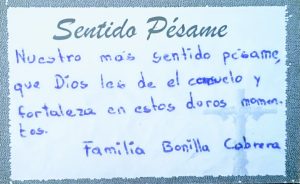 Sentido Pésame
Nuestro mas sentido pésame,
que Dios les de el consuelo y
fortaleza en estos duros momen-
tos.
Familia Bonilla Cabrera